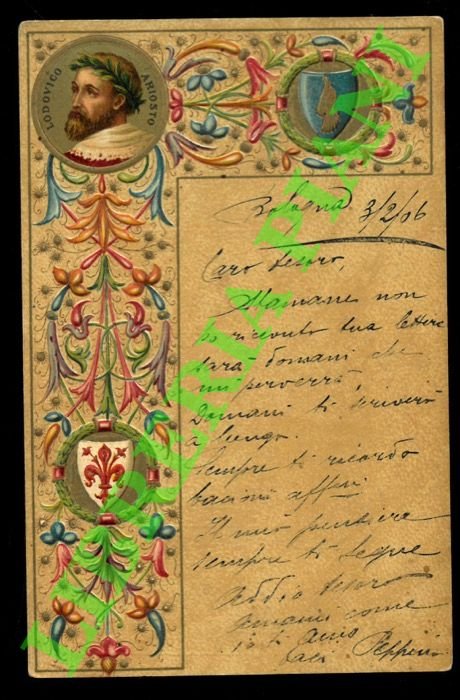 LODOVICO ARIOSTO
Bologna 3/2/06
Caro tesoro,
Stamane non
ho ricevuto tua lettera
sarà domani che
mi perverrà,
Domani ti scriverò
a lungo.
Sempre ti ricordo
bacioni
Il mio pensiero
sempre ti segue
Addio tesoro
amami come
io ti amo
Peppino